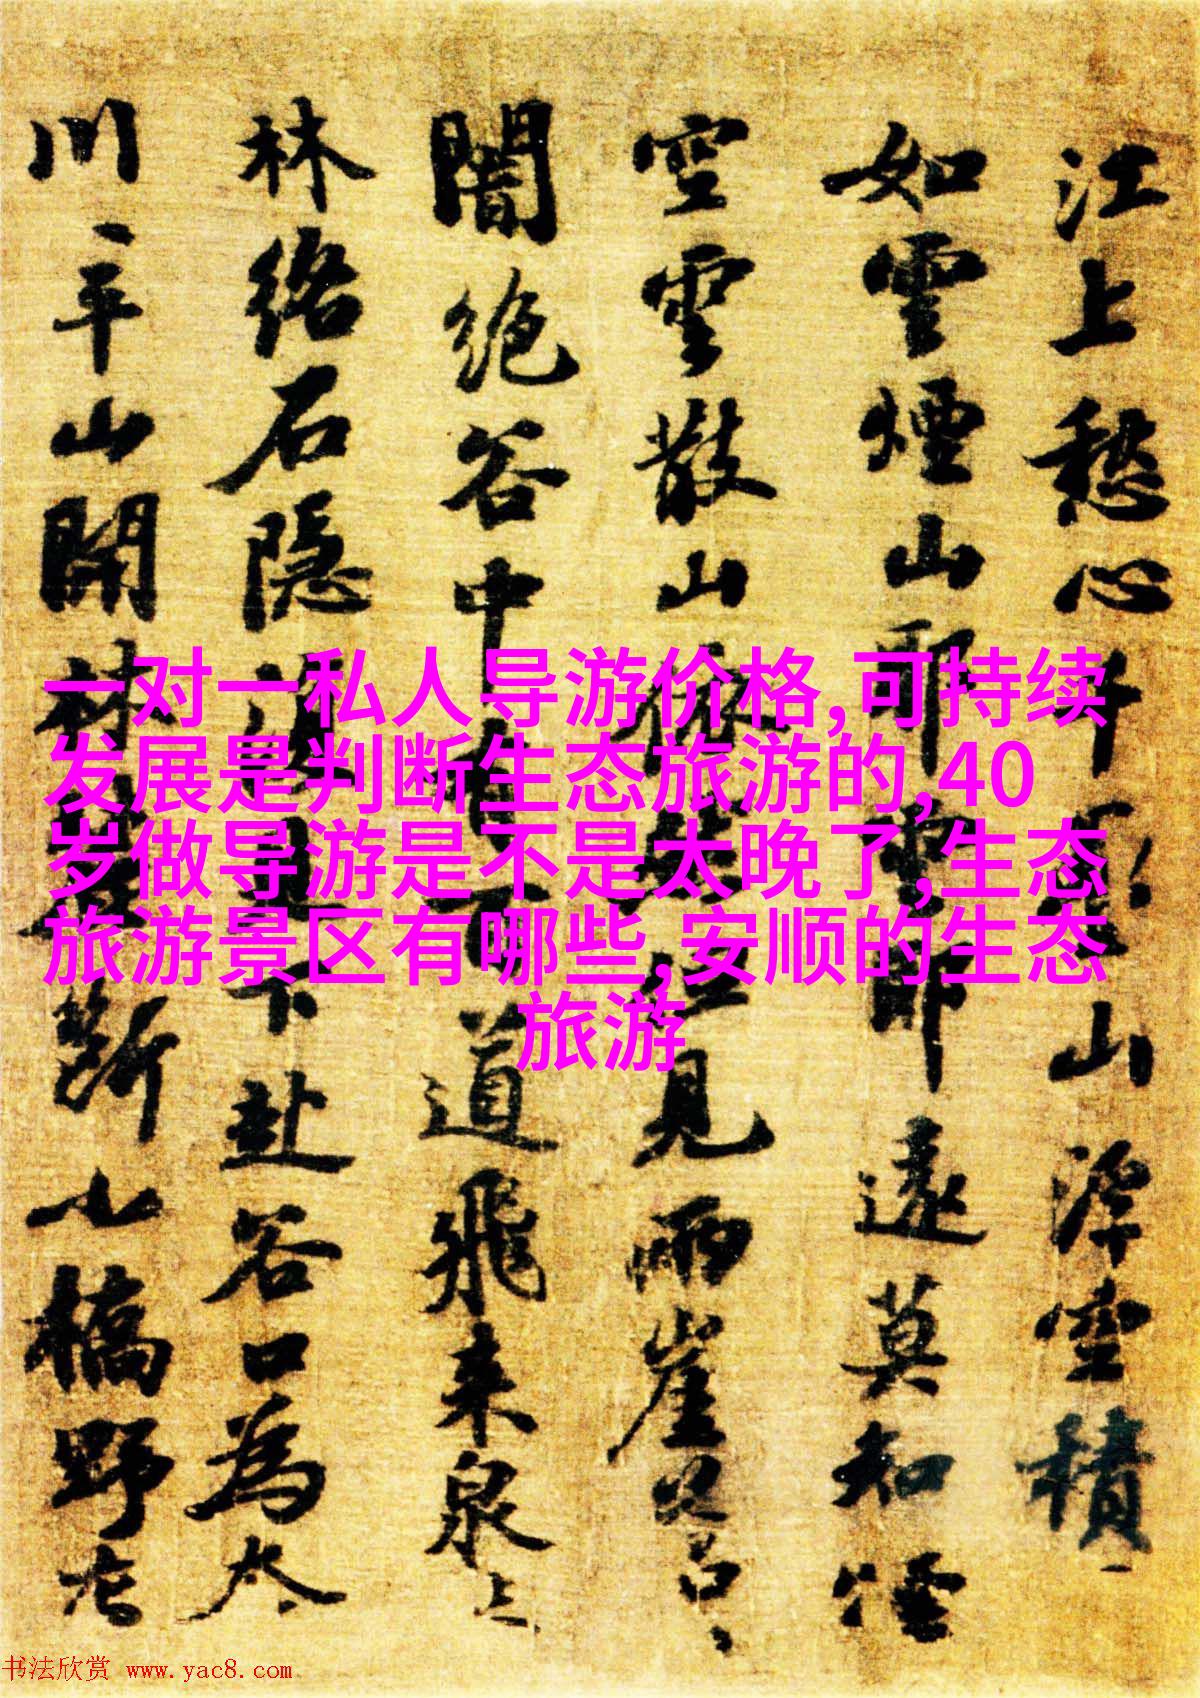 江上愁心千山浮空積
如雲煙山耶雲耶遠莫知煙
空雲散山依見兩崖
闇絶谷中百道飛来泉
林络石隐下赴谷口為
川平山開林斷小橋野
一对一私人导游价格,可持续
发展是判断生态旅游的,40
岁做导游是不是太晚了,生态
旅游景区有哪些,安顺的生态
旅游
书法欣赏 www.yac8.com